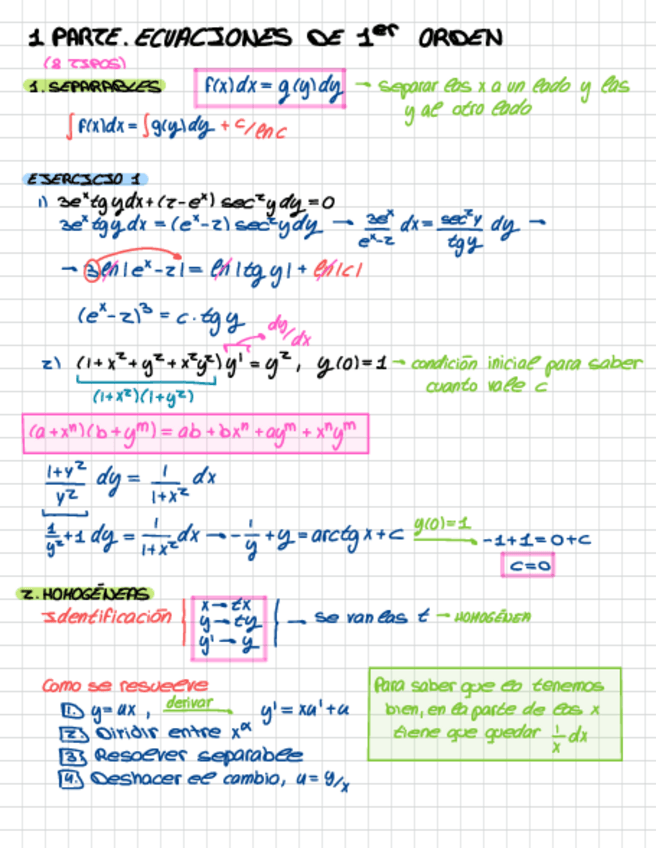 1 PARTE. ECUACIONES DE 1er ORDEN
(8 TIPOS)
1. SEPARABLES
f(x)dx = g(y)dy → separar las x a un lado y las
y al otro lado
∫f(x)dx = ∫g(y)dy + c/lnc
EJERCICIO 1
1) 3e^x tg y dx + (2-e^x) sec²y dy = 0
3e^x tg y dx = (e^x-2) sec²y dy → 3e^x/(e^x-2) dx = sec²y/tg y dy →
→ 3 ln|e^x-2| = ln|tg y| + ln|c|
(e^x-2)³ = c · tg y
dy/dx
2) (1+x²+y²+x²y²) y' = y², y(0)=1 → condición inicial para saber
cuanto vale c
(1+x²)(1+y²)
(a+x^n)(b+y^m) = ab + bx^n + ay^m + x^n y^m
(1+y²)/y² dy = 1/(1+x²) dx
1/y² + 1 dy = 1/(1+x²) dx → -1/y + y = arctg x + c y(0)=1 → -1+1=0+c
c=0
2. HOMOGÉNEAS
Identificación
x → tx
y → ty
y' → y
→ se van las t → HOMOGÉNEA
Como se resuelve
1. y=ux, derivar y'=xu'+u
2. Dividir entre x^α
3. Resolver separable
4. Deshacer el cambio, u=y/x
Para saber que lo tenemos
bien, en la parte de las x
tiene que quedar 1/x dx